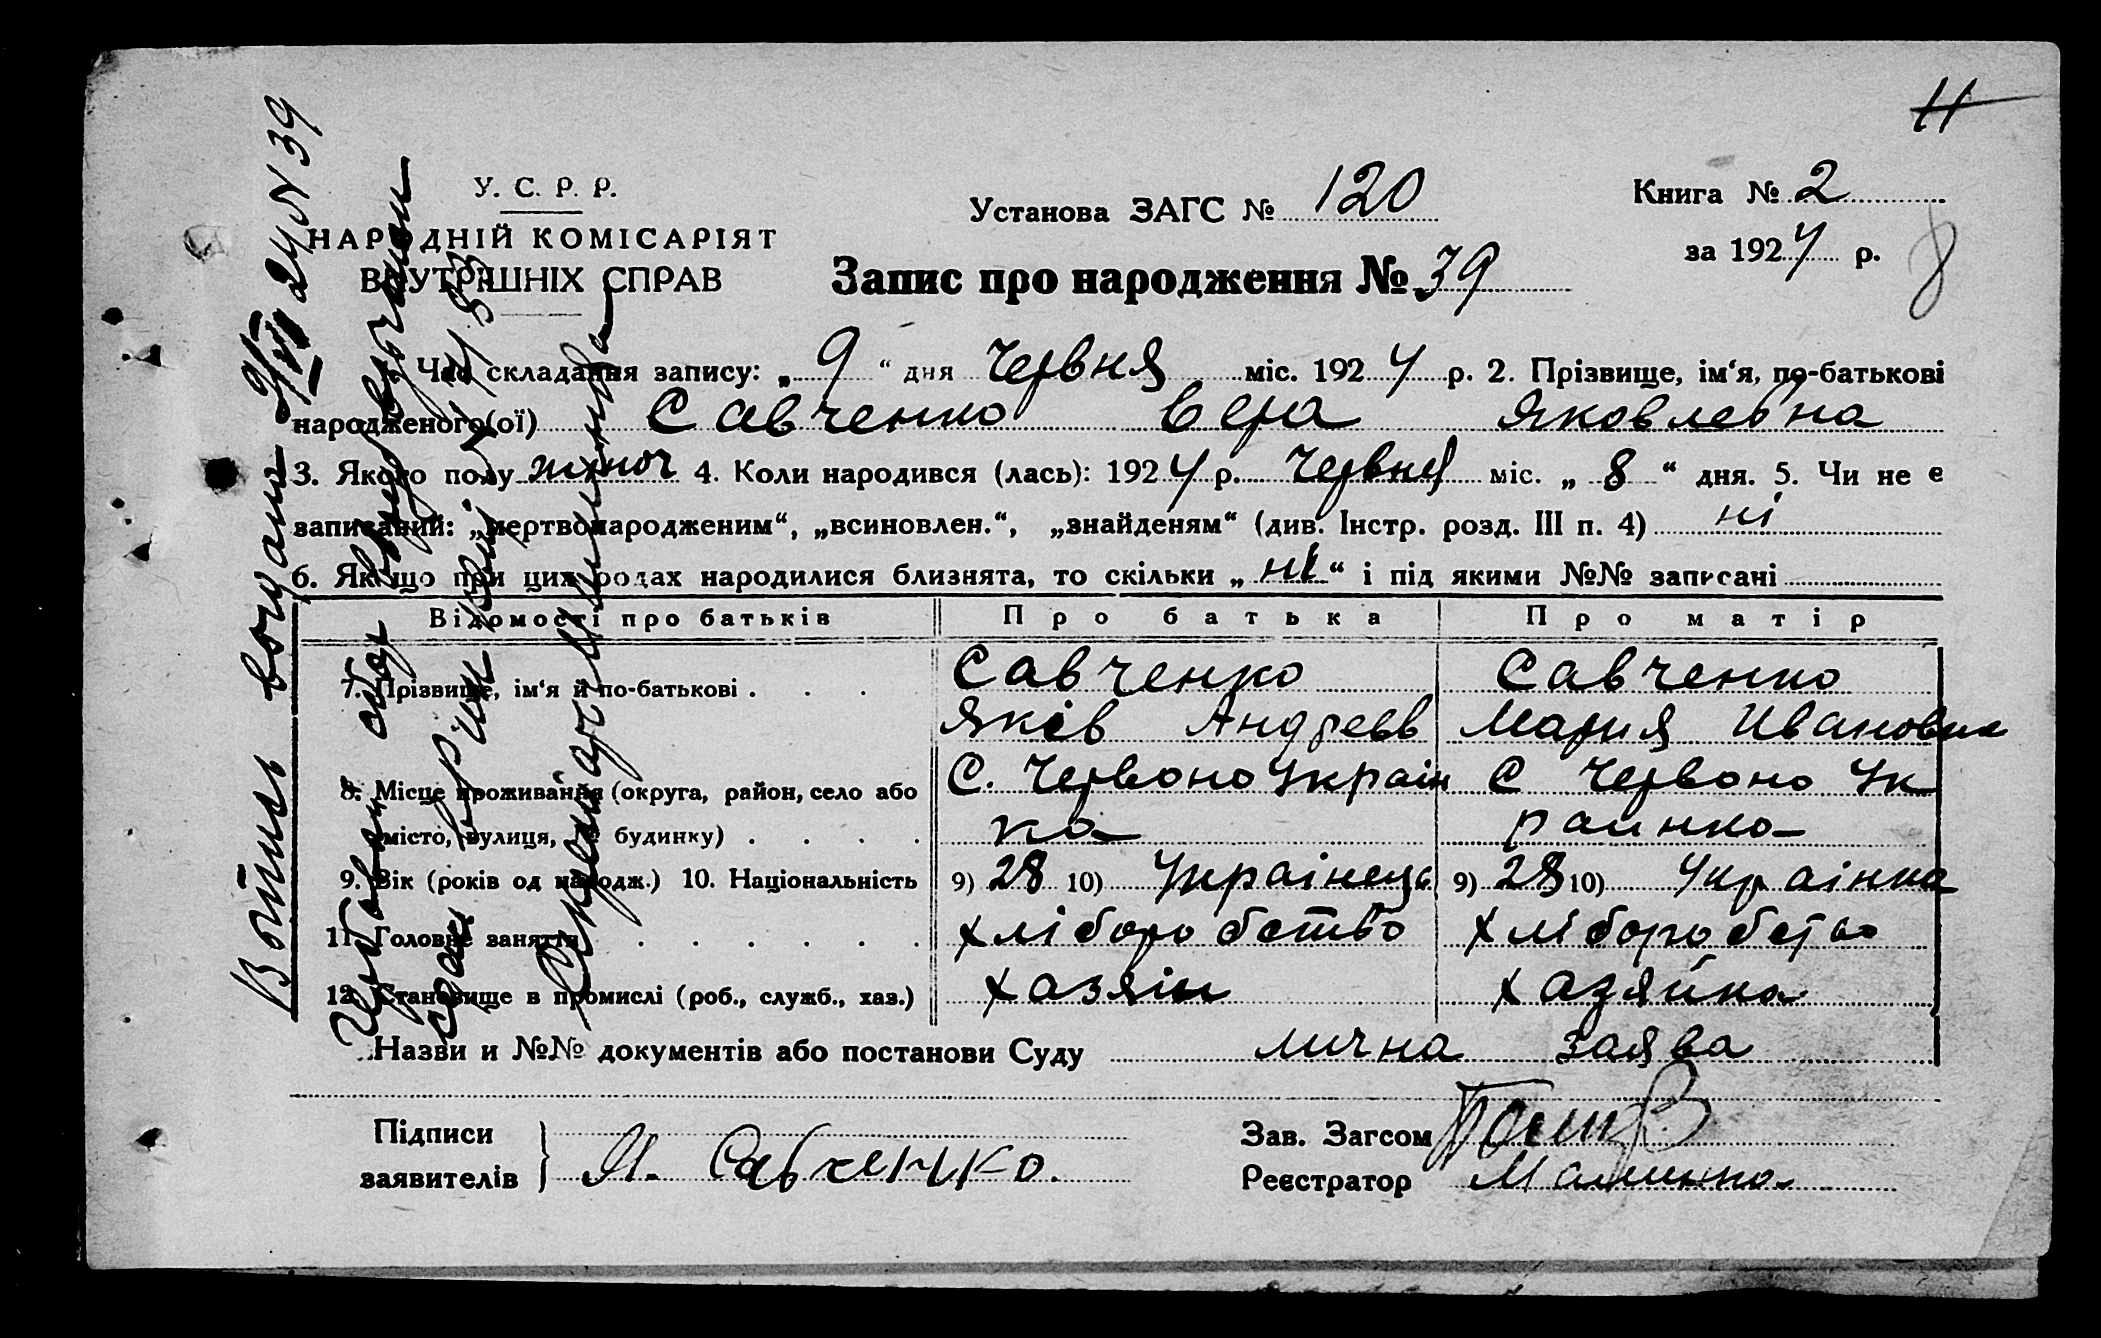 11
У. С. Р. Р.
НАРОДНІЙ КОМІСАРІЯТ
ВНУТРІШНІХ СПРАВ
Установа ЗАГС № 120
Книга № 2
за 1924 р.
8
Запис про народження № 39
Час складання запису: „ 9 “ дня Червня міс. 1924 р. 2. Прізвище, ім‘я, по-батькові
народженого(ої) Савченко Вера Яковлевна
3. Якого полу жіноч 4. Коли народився (лась): 1924 р. Червня міс. „ 8 “ дня. 5. Чи не є
записаний: „мертвонародженим“, „всиновлен.“, „знайденям“ (див. Інстр. розд. III п. 4) ні
6. Якщо при цих родах народилися близнята, то скільки „ ні “ і під якими №№ записані
Відомості про батьків Про батька Про матір
7. Прізвище, ім‘я й по-батькові . . . Савченко Савченко
Яків Андреев Мария Ивановна
8. Місце проживання (округа, район, село або С. Червоно Украін С Червоно Ук
місто, вулиця, № будинку) . . . . ка раинка
9. Вік (років од народж.) 10. Національність 9) 28 10) Украінець 9) 28 10) Украінка
11. Головне заняття . . . . . . хліборобство хлібороб
12. Становище в промислі (роб., служб., хаз.) хазяін хазяйка
Назви и №№ документів або постанови Суду лична заява
Підписи
заявителів } Я. Савченко.
Зав. Загсом
Реєстратор
24 N 39